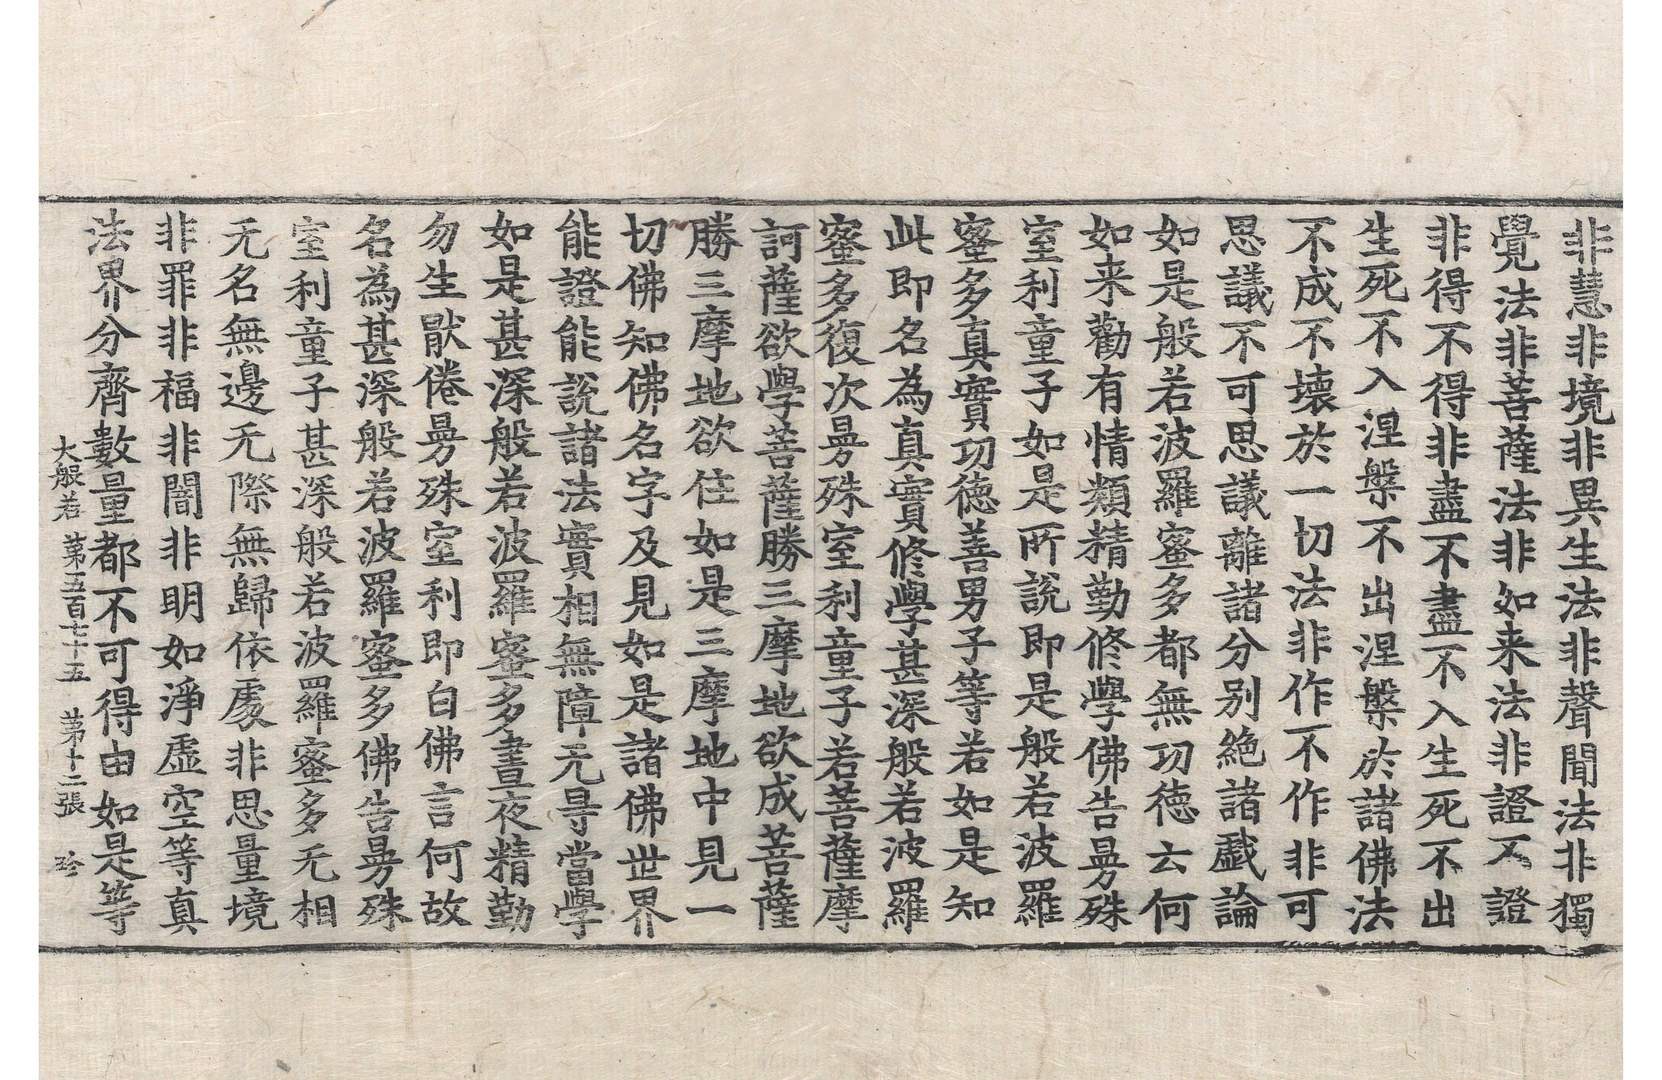 非慧非境非異生法非聲聞法非獨
覺法非菩薩法非如来法非證不證
非得不得非盡不盡不入生死不出
生死不入涅槃不出涅槃於諸佛法
不成不壞於一切法非作不作非可
思議不可思議離諸分别絶諸戱論
如是般若波羅蜜多都無功徳云何
如来勸有情類精勤修學佛告曼殊
室利童子如是所說即是般若波羅
蜜多真實功徳善男子等若如是知
此即名為真實修學甚深般若波羅
蜜多復次曼殊室利童子若菩薩摩
訶薩欲學菩薩勝三摩地欲成菩薩
勝三摩地欲住如是三摩地中見一
切佛知佛名字及見如是諸佛世界
能證能說諸法實相無障无㝵當學
如是甚深般若波羅蜜多晝夜精勤
勿生猒倦曼殊室利即白佛言何故
名為甚深般若波羅蜜多佛告曼殊
室利童子甚深般若波羅蜜多无相
无名無邊无際無歸依處非思量境
非罪非福非闇非明如淨虛空等真
法界分齊數量都不可得由如是等
大般若 第五百七十五 第十二張 珎